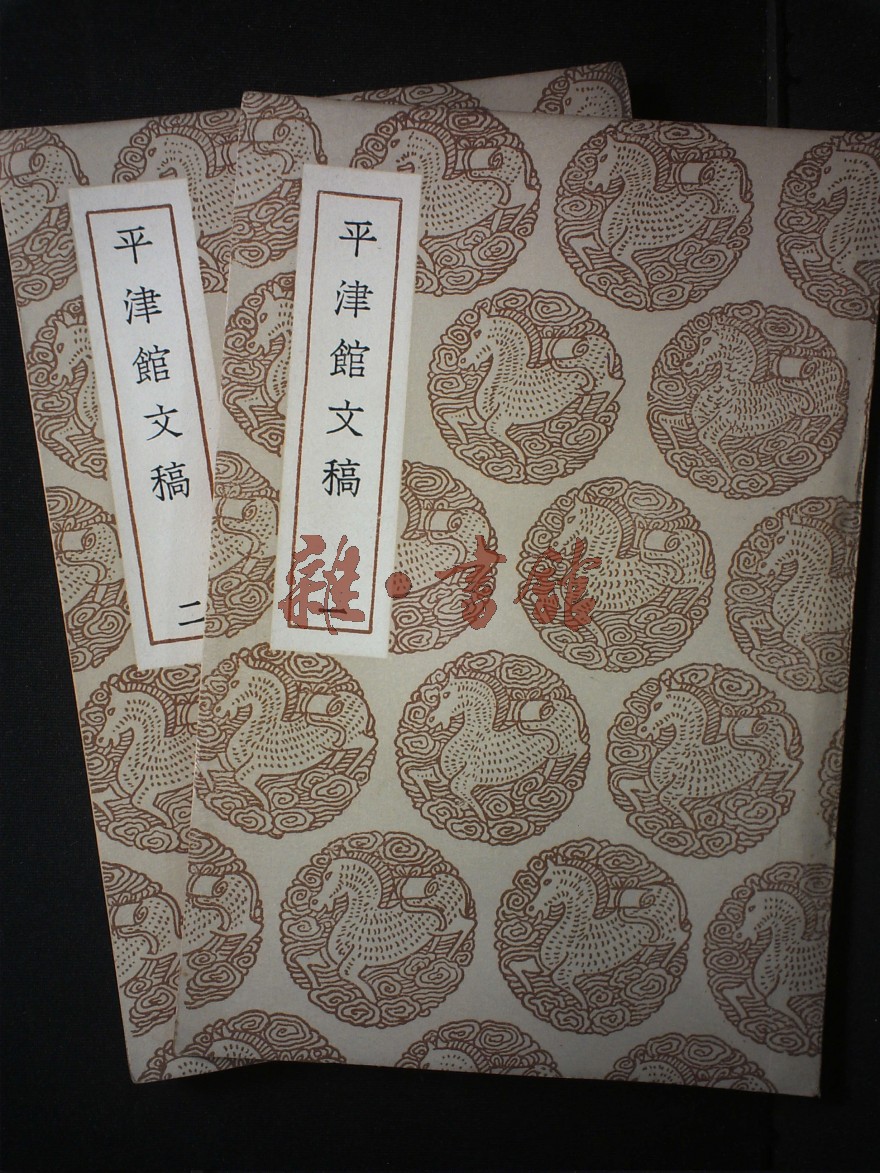 平津館文稿
二
平津館文稿
一
雜·書館